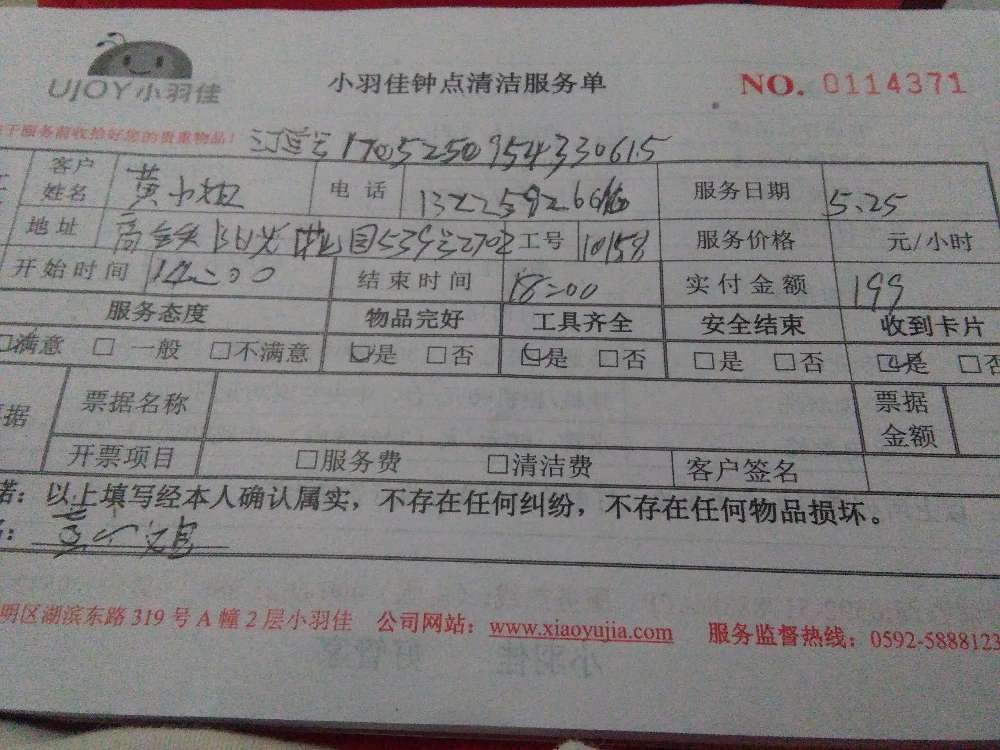 UJOY小羽佳 小羽佳钟点清洁服务单 NO. 0114371
于服务前收拾好您的贵重物品! 订单号 170525095433061 5
客户姓名 黄小姐 电话 服务日期 5.25
地址 539号2702 工号 10158 服务价格 元/小时
开始时间 14:00 结束时间 18:00 实付金额 199
服务态度 物品完好 工具齐全 安全结束 收到卡片
□满意 □ 一般 □不满意 □是 □否 □是 □否 □是 □否 □是 □否
据 票据名称 票据金额
开票项目 □服务费 □清洁费 客户签名
诺：以上填写经本人确认属实，不存在任何纠纷，不存在任何物品损坏。
明区湖滨东路 319 号 A 幢 2 层小羽佳 公司网站：www.xiaoyujia.com 服务监督热线：0592-5888123
小羽佳 好管家